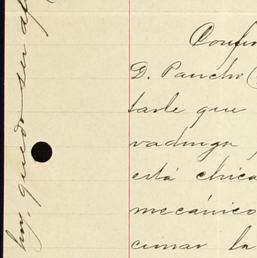 Confir
D. Pancho (
tarle que
vadunga,
está chica
mecánico
cinar la
hoy, quedo su af